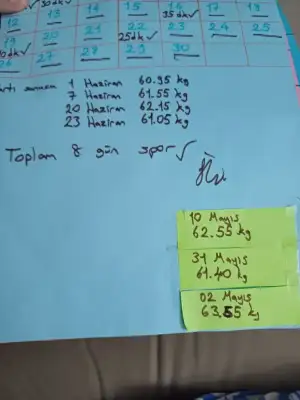 30dk ✓
12 13 14 15 16 17 18
35dk ✓
19 20 21 22 23 24 25
25dk ✓
26 27 28 29 30
1 Haziran 60.95 kg
7 Haziran 61.55 kg
20 Haziran 62.15 kg
23 Haziran 61.05 kg
Toplam 8 gün spor ✓
10 Mayıs
62.55 kg
31 Mayıs
61.40 kg
02 Mayıs
63.55 kg